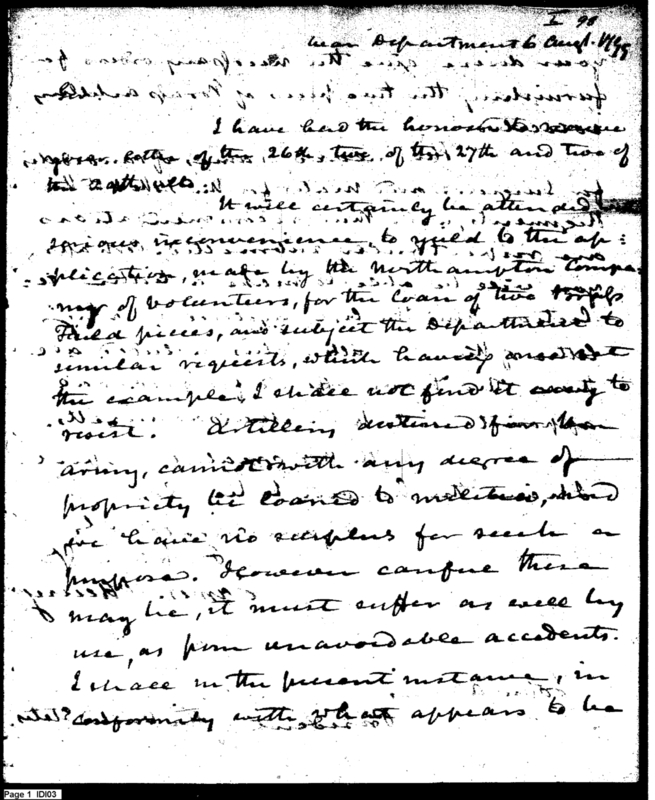 I 98
War Department 6 Augt. 1799
I have had the honor to receive
your letter, of the 26th, two of the 27th and two of
the
It will certainly be attended
serious inconvenience, to yield to the ap=
plication, made by the Northampton Compa
ny of Volunteers, for the loan of two Brass
Field pieces, and subject the Department to
similar requests, which having once set
the example, I shall not find it easy to
resist. Artillery destined for
army, cannot with any degree of
propriety be loaned to militia, and
we have no surplus for such a
purpose. However careful these
may be, it must suffer as well by
use, as from unavoidable accidents.
I shall in the present instance, in
conformity with what appears to be
Page 1 IDI03